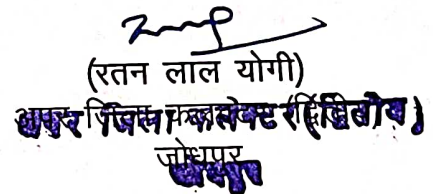 (रतन लाल योगी)
अपर जिला कलेक्टर (द्वितीय)
जोधपुर